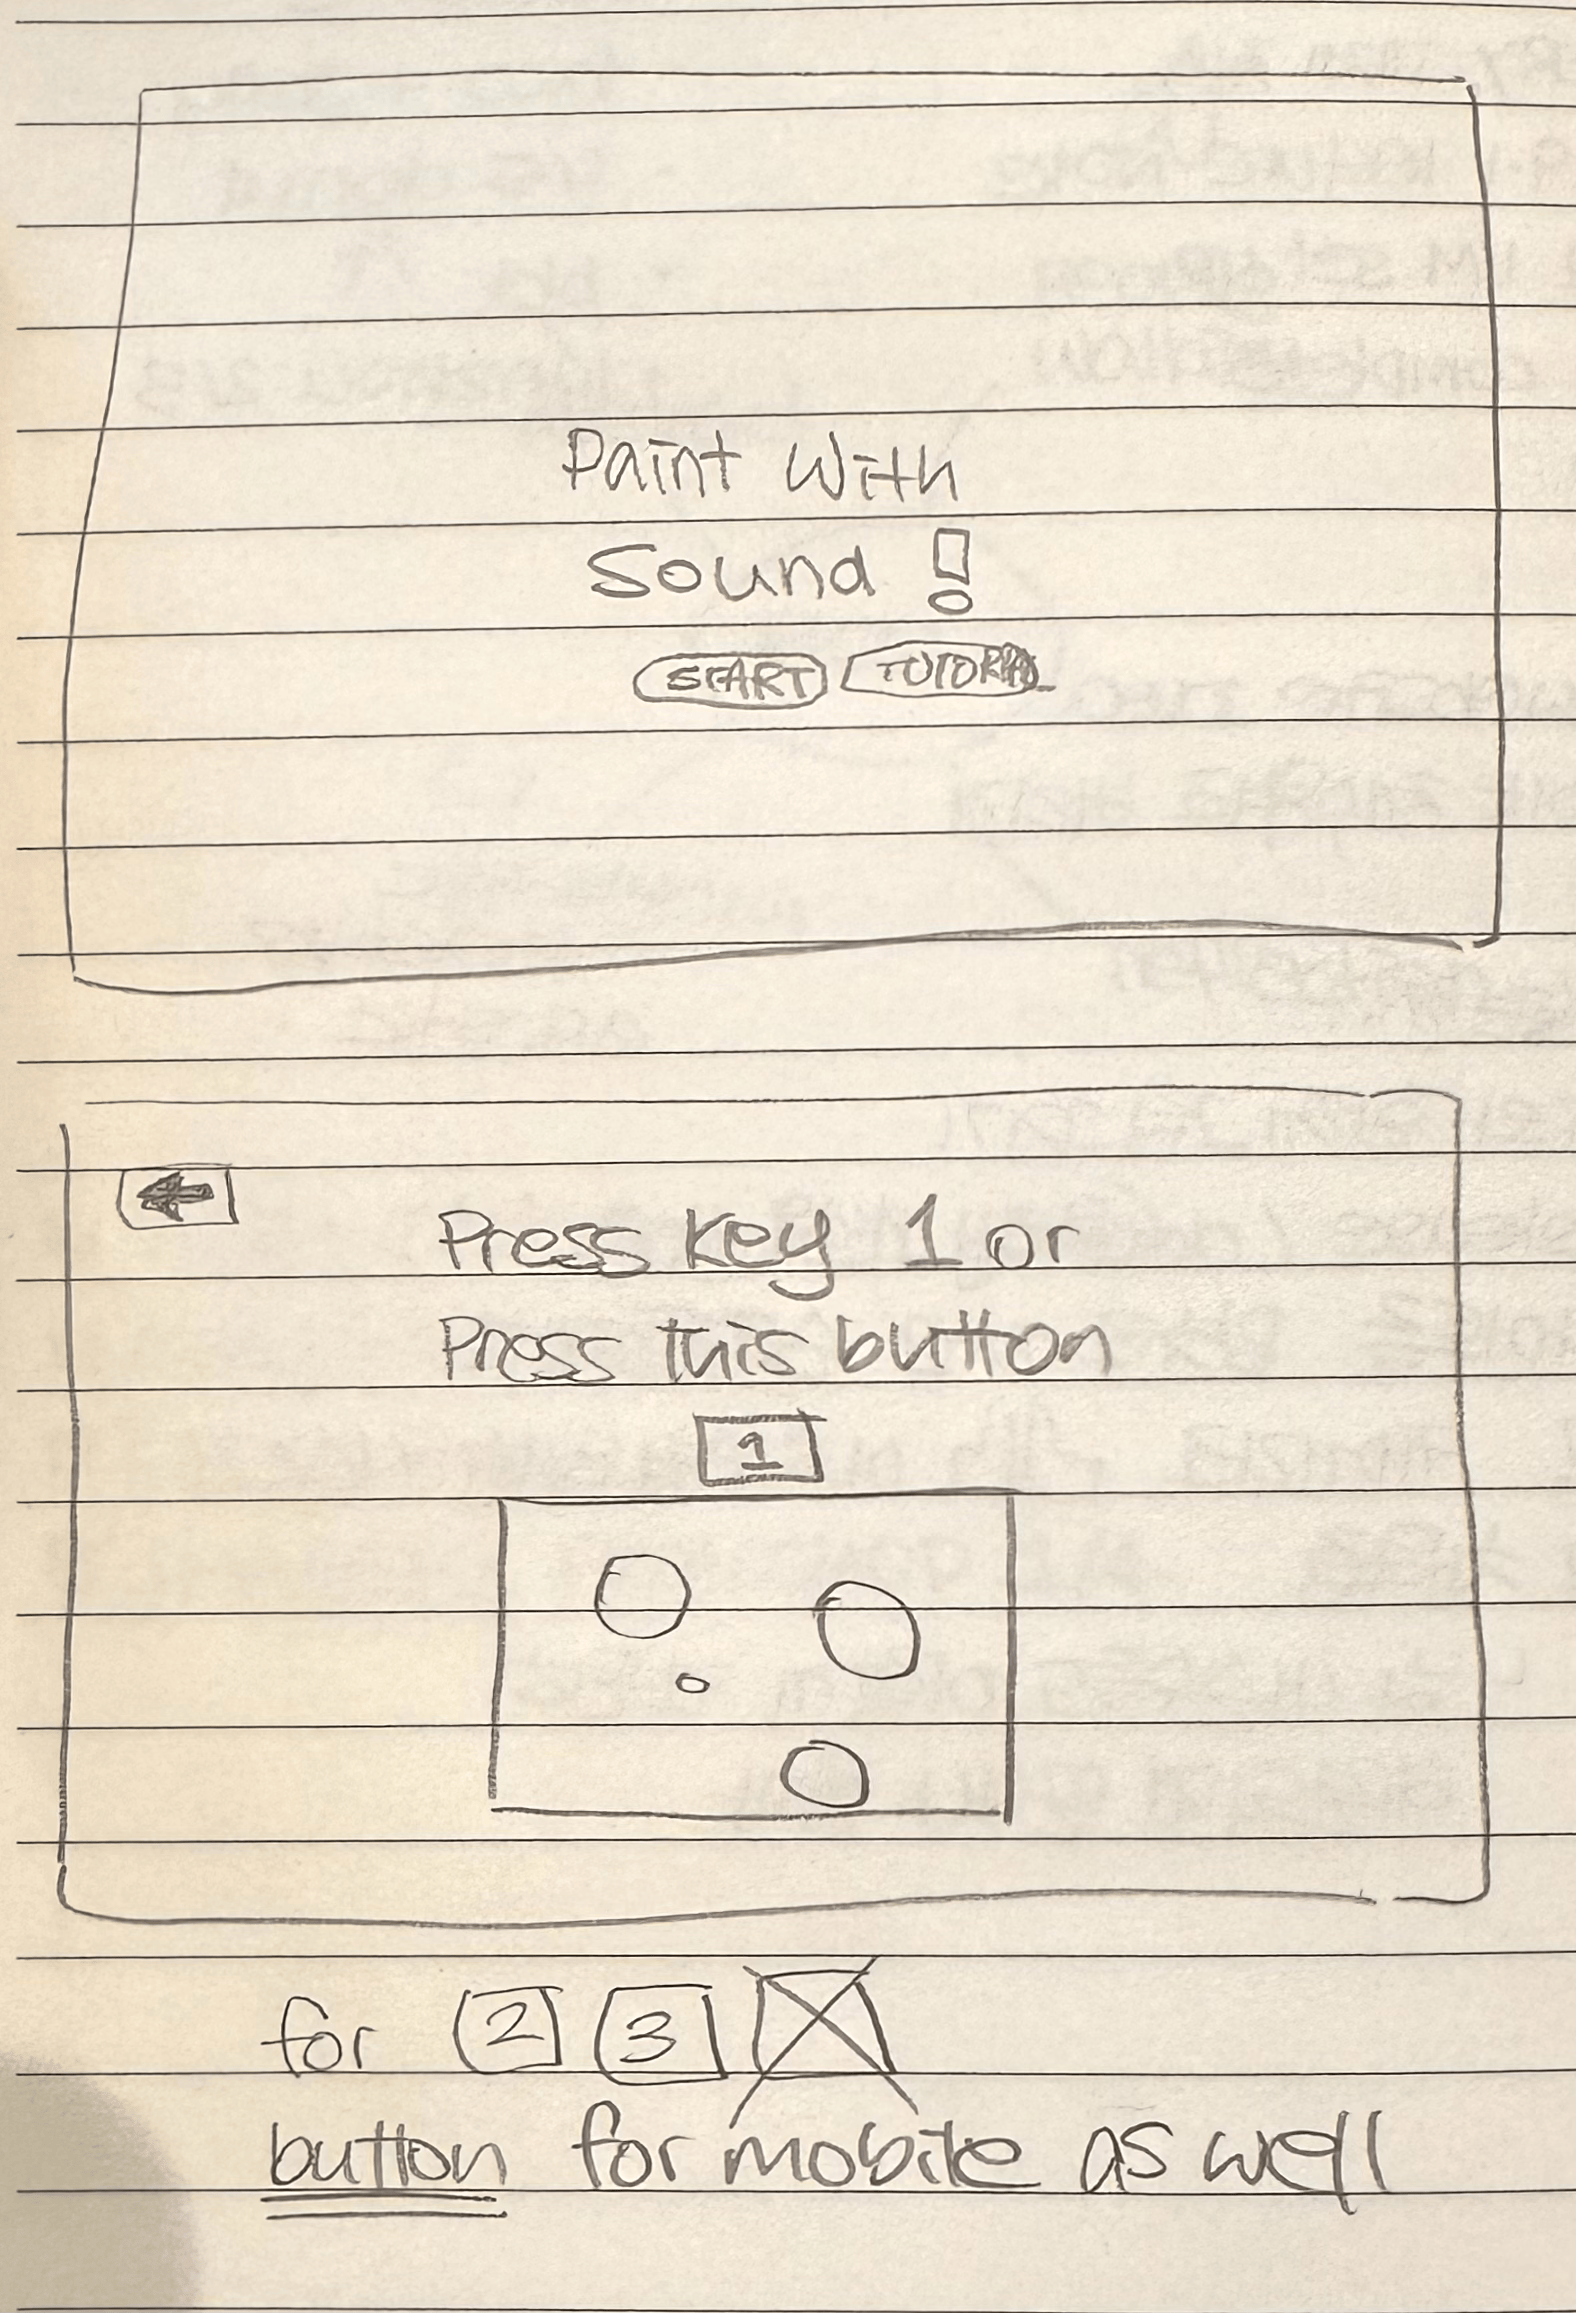 Paint With
Sound!
START TUTORIAL
Press key 1 or
Press this button
1
for 2 3
button for mobile as well